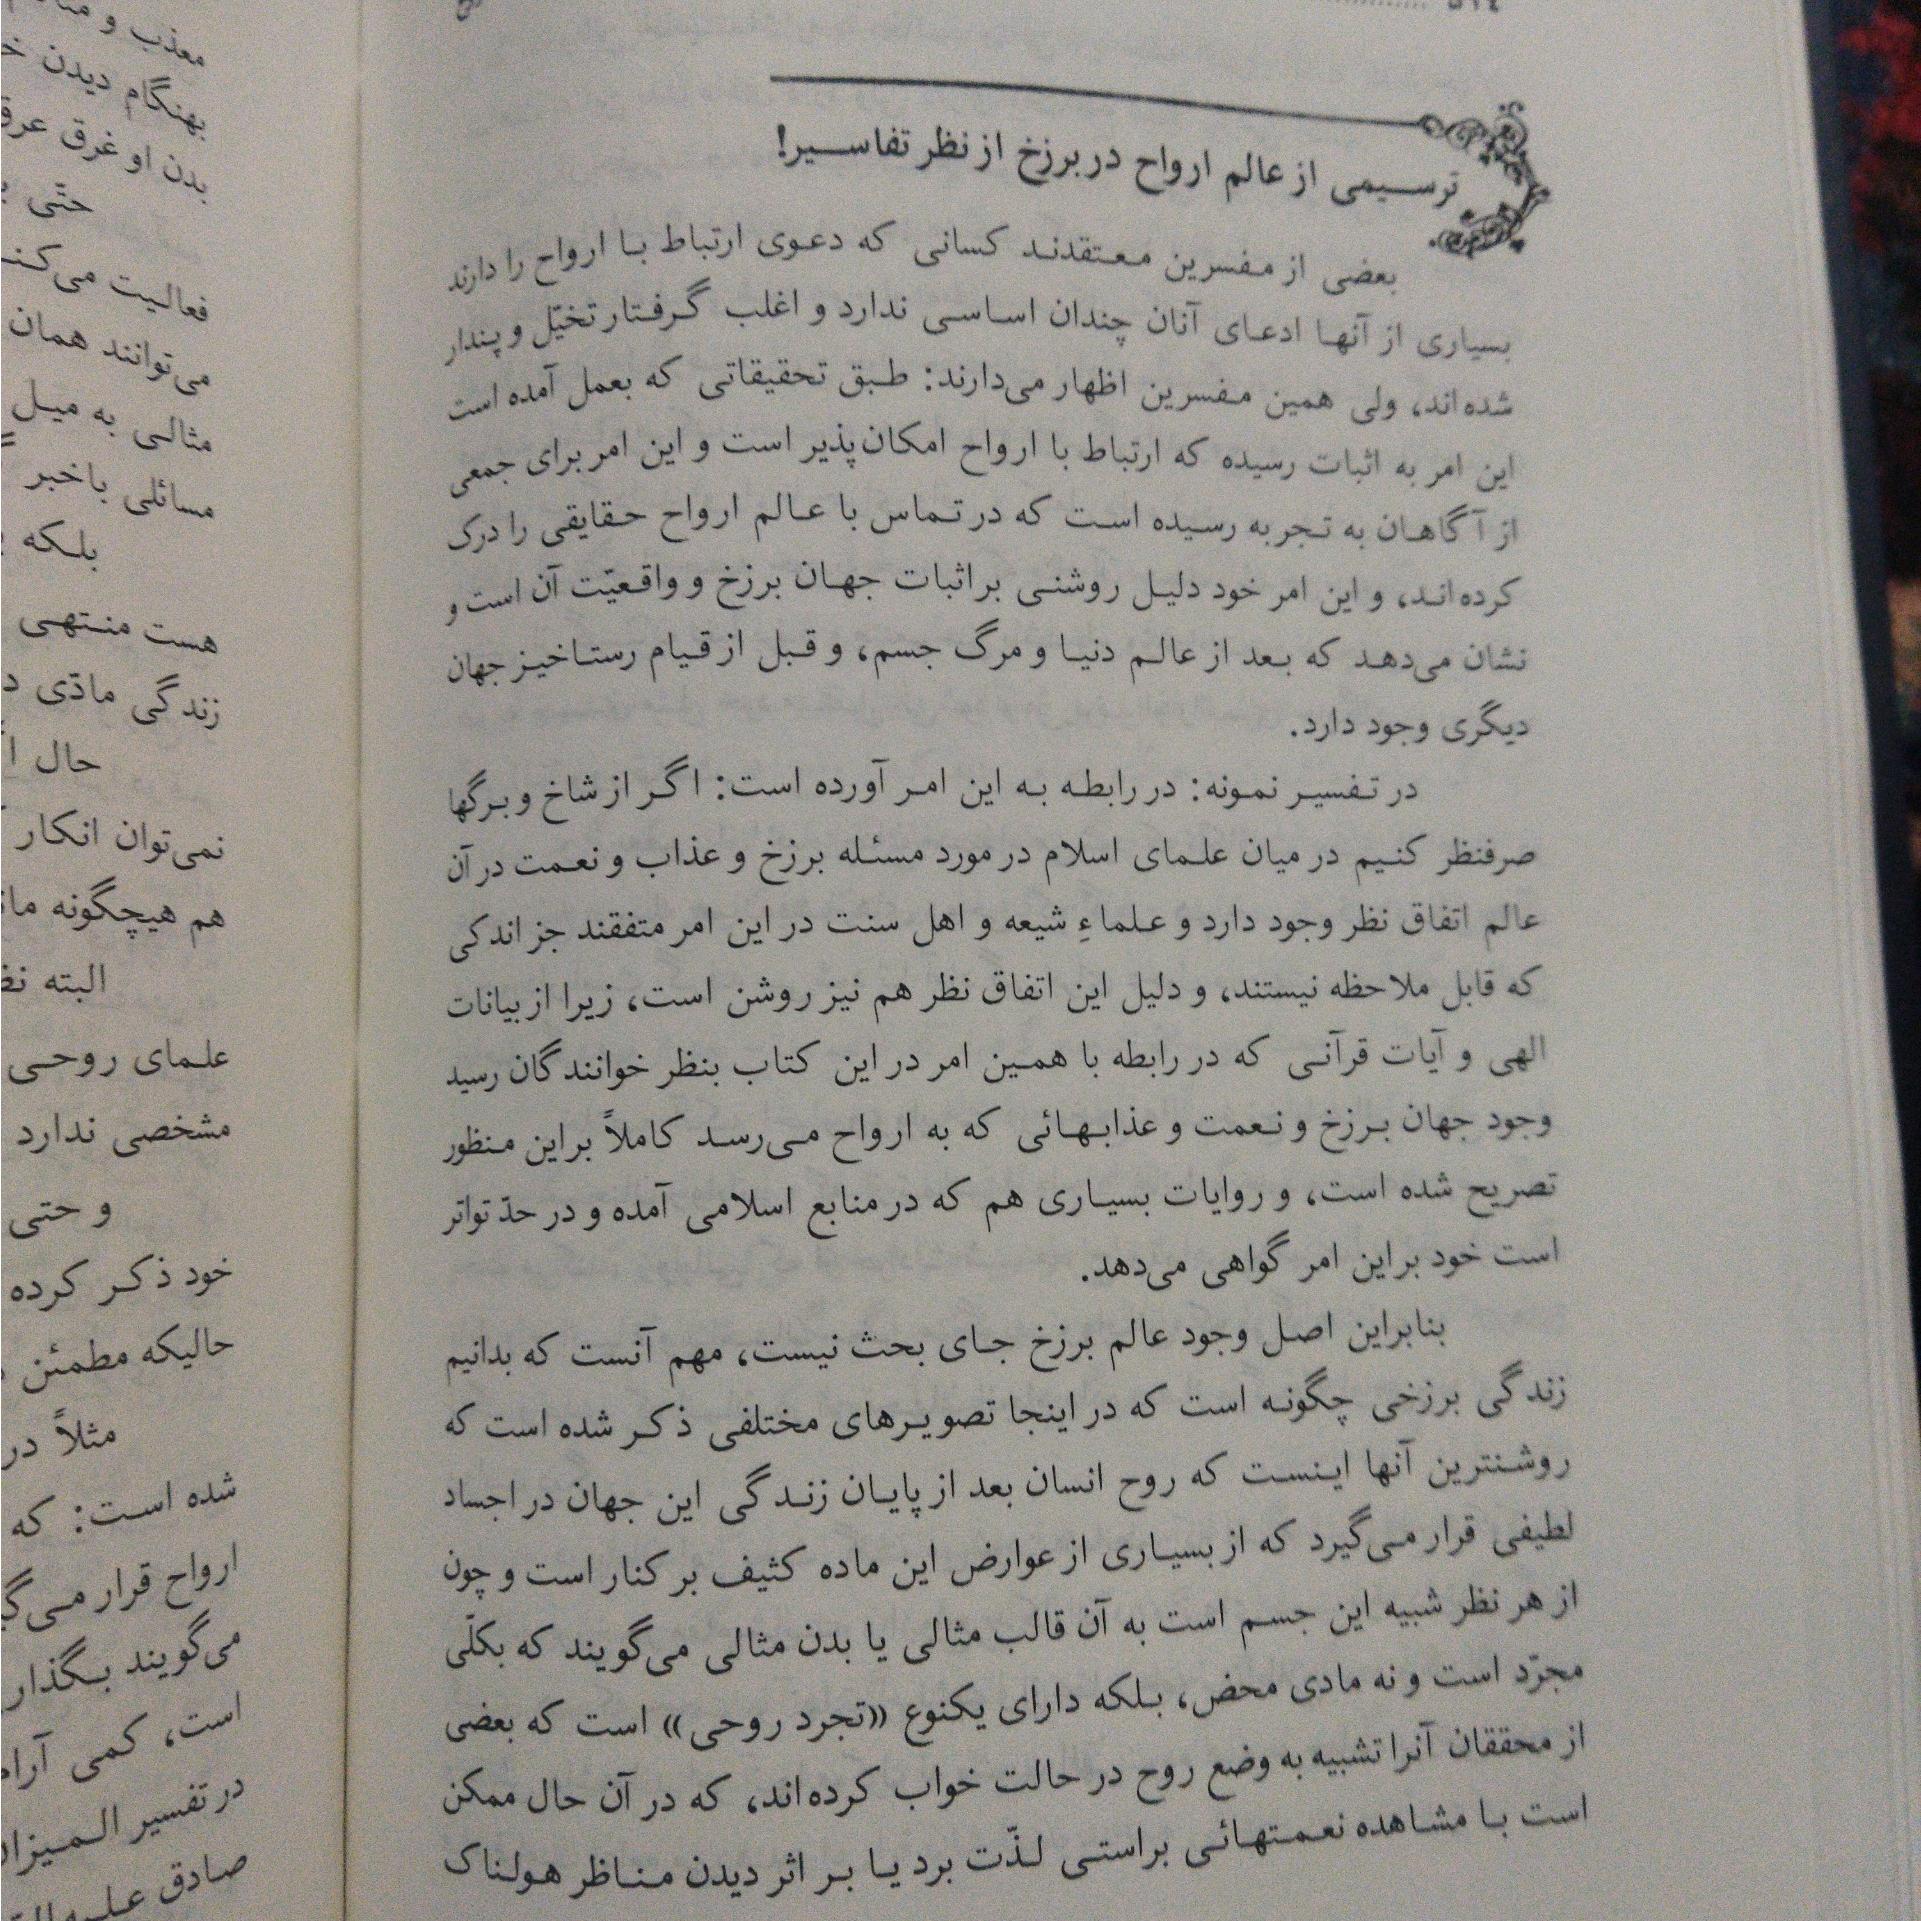 ترسیمی از عالم ارواح در برزخ از نظر تفاسیر!
بعضی از مفسرین معتقدند کسانی که دعوی ارتباط با ارواح را دارند
بسیاری از آنها ادعای آنان چندان اساسی ندارد و اغلب گرفتار تخیّل و پندار
شده‌اند، ولی همین مفسرین اظهار می‌دارند: طبق تحقیقاتی که بعمل آمده است
این امر به اثبات رسیده که ارتباط با ارواح امکان‌پذیر است و این امر برای جمعی
از آگاهان به تجربه رسیده است که در تماس با عالم ارواح حقایقی را درک
کرده‌اند، و این امر خود دلیل روشنی بر اثبات جهان برزخ و واقعیّت آن است و
نشان می‌دهد که بعد از عالم دنیا و مرگ جسم، و قبل از قیام رستاخیز جهان
دیگری وجود دارد.
در تفسیر نمونه: در رابطه به این امر آورده است: اگر از شاخ و برگها
صرفنظر کنیم در میان علمای اسلام در مورد مسئله برزخ و عذاب و نعمت در آن
عالم اتفاق نظر وجود دارد و علماءِ شیعه و اهل سنت در این امر متفقند جز اندکی
که قابل ملاحظه نیستند، و دلیل این اتفاق نظر هم نیز روشن است، زیرا از بیانات
الهی و آیات قرآنی که در رابطه با همین امر در این کتاب بنظر خوانندگان رسید
وجود جهان برزخ و نعمت و عذابهائی که به ارواح می‌رسد کاملاً بر این منظور
تصریح شده است، و روایات بسیاری هم که در منابع اسلامی آمده و در حدّ تواتر
است خود بر این امر گواهی می‌دهد.
بنابراین اصل وجود عالم برزخ جای بحث نیست، مهم آنست که بدانیم
زندگی برزخی چگونه است که در اینجا تصویرهای مختلفی ذکر شده است که
روشنترین آنها اینست که روح انسان بعد از پایان زندگی این جهان در اجساد
لطیفی قرار می‌گیرد که از بسیاری از عوارض این ماده کثیف بر کنار است و چون
از هر نظر شبیه این جسم است به آن قالب مثالی یا بدن مثالی می‌گویند که بکلّی
مجرّد است و نه مادی محض، بلکه دارای یکنوع «تجرد روحی» است که بعضی
از محققان آنرا تشبیه به وضع روح در حالت خواب کرده‌اند، که در آن حال ممکن
است با مشاهده نعمتهائی براستی لذّت برد یا بر اثر دیدن مناظر هولناک
معذب و
بهنگام دیدن
بدن او غرق
حتّی
فعالیت
می‌توانند همان
مثالی به میل
مسائلی باخبر
بلکه
هست منتهی
زندگی مادّی
حال
نمی‌توان انکار
هم هیچگونه
البته
علمای روحی
مشخصی ندارد
و حتی
خود ذکر کرده
حالیکه مطمئن
مثلاً در
شده است: که
ارواح قرار
می‌گویند بگذار
است، کمی
در تفسیر المیزان
صادق